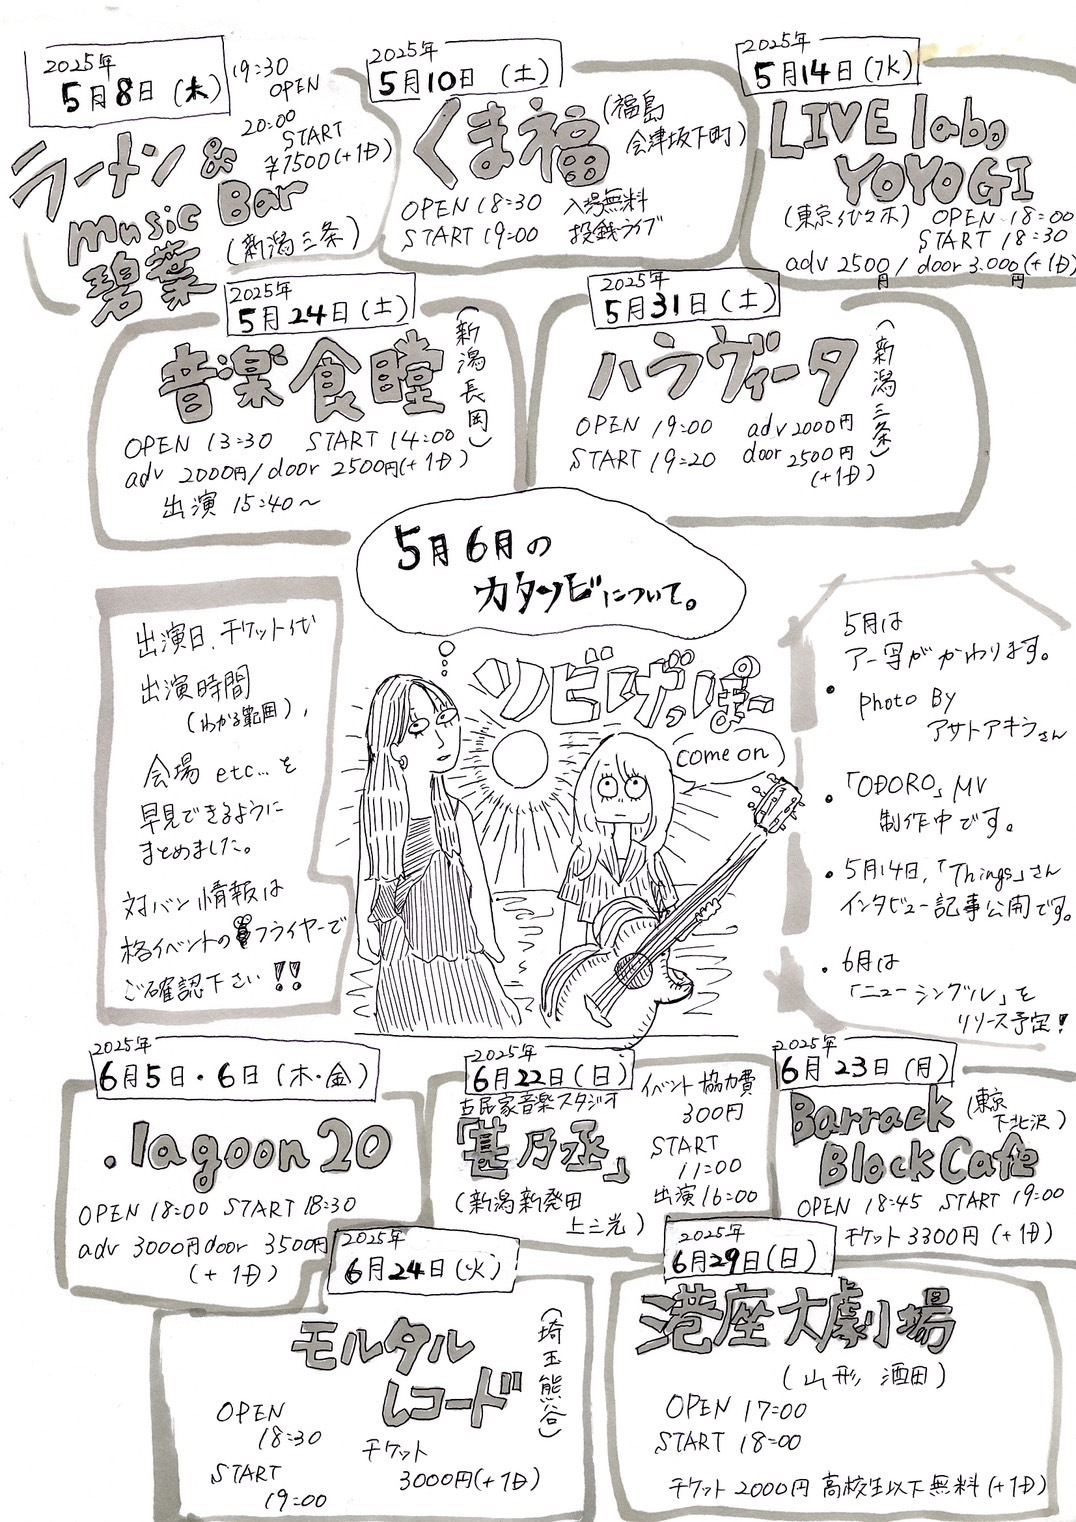 2025年
5月8日(木)
19:30
OPEN
20:00
START
¥1500(+1D)
ラーメン &
music Bar
碧葉
(新潟三条)
2025年
5月10日(土)
くま福
(福島
会津坂下町)
OPEN 18:30 入場無料
START 19:00 投銭ライブ
2025年
5月14日(水)
LIVE labo
YOYOGI
(東京代々木) OPEN 18:00
START 18:30
adv 2500円/door 3.000円(+1D)
2025年
5月24日(土)
音楽食瞠
(新潟長岡)
OPEN 13:30 START 14:00
adv 2000円/door 2500円(+1D)
出演 15:40〜
2025年
5月31日(土)
ハラヴィータ
(新潟三条)
OPEN 19:00 adv 2000円
START 19:20 door 2500円
(+1D)
5月6月の
カタソビについて。
出演日、チケット代
出演時間
(わかる範囲)、
会場 etc…を
早見できるように
まとめました。
対バン情報は
格イベントのフライヤーで
ご確認下さい!!
ソビげっぽー
come on
5月は
アー写がかわります。
• photo By
アサトアキラさん
•「ODORO」MV
制作中です。
•5月14日、「Things」さん
インタビュー記事公開です。
•6月は
「ニューシングル」を
リリース予定!
2025年
6月5日・6日(木・金)
.lagoon20
OPEN 18:00 START 18:30
adv 3000円 door 3500円
(+1D)
2025年
6月22日(日)
古民家音楽スタジオ
「甚乃丞」
(新潟新発田
上三光)
イベント協力費
300円
START
11:00
出演16:00
2025年
6月23日(月)
Barrack
Block Cafe
(東京
下北沢)
OPEN 18:45 START 19:00
チケット3300円(+1D)
2025年
6月24日(火)
モルタル
レコード
(埼玉熊谷)
OPEN
18:30
START
19:00
チケット
3000円(+1D)
2025年
6月29日(日)
港座大劇場
(山形 酒田)
OPEN 17:00
START 18:00
チケット 2000円 高校生以下無料(+1D)